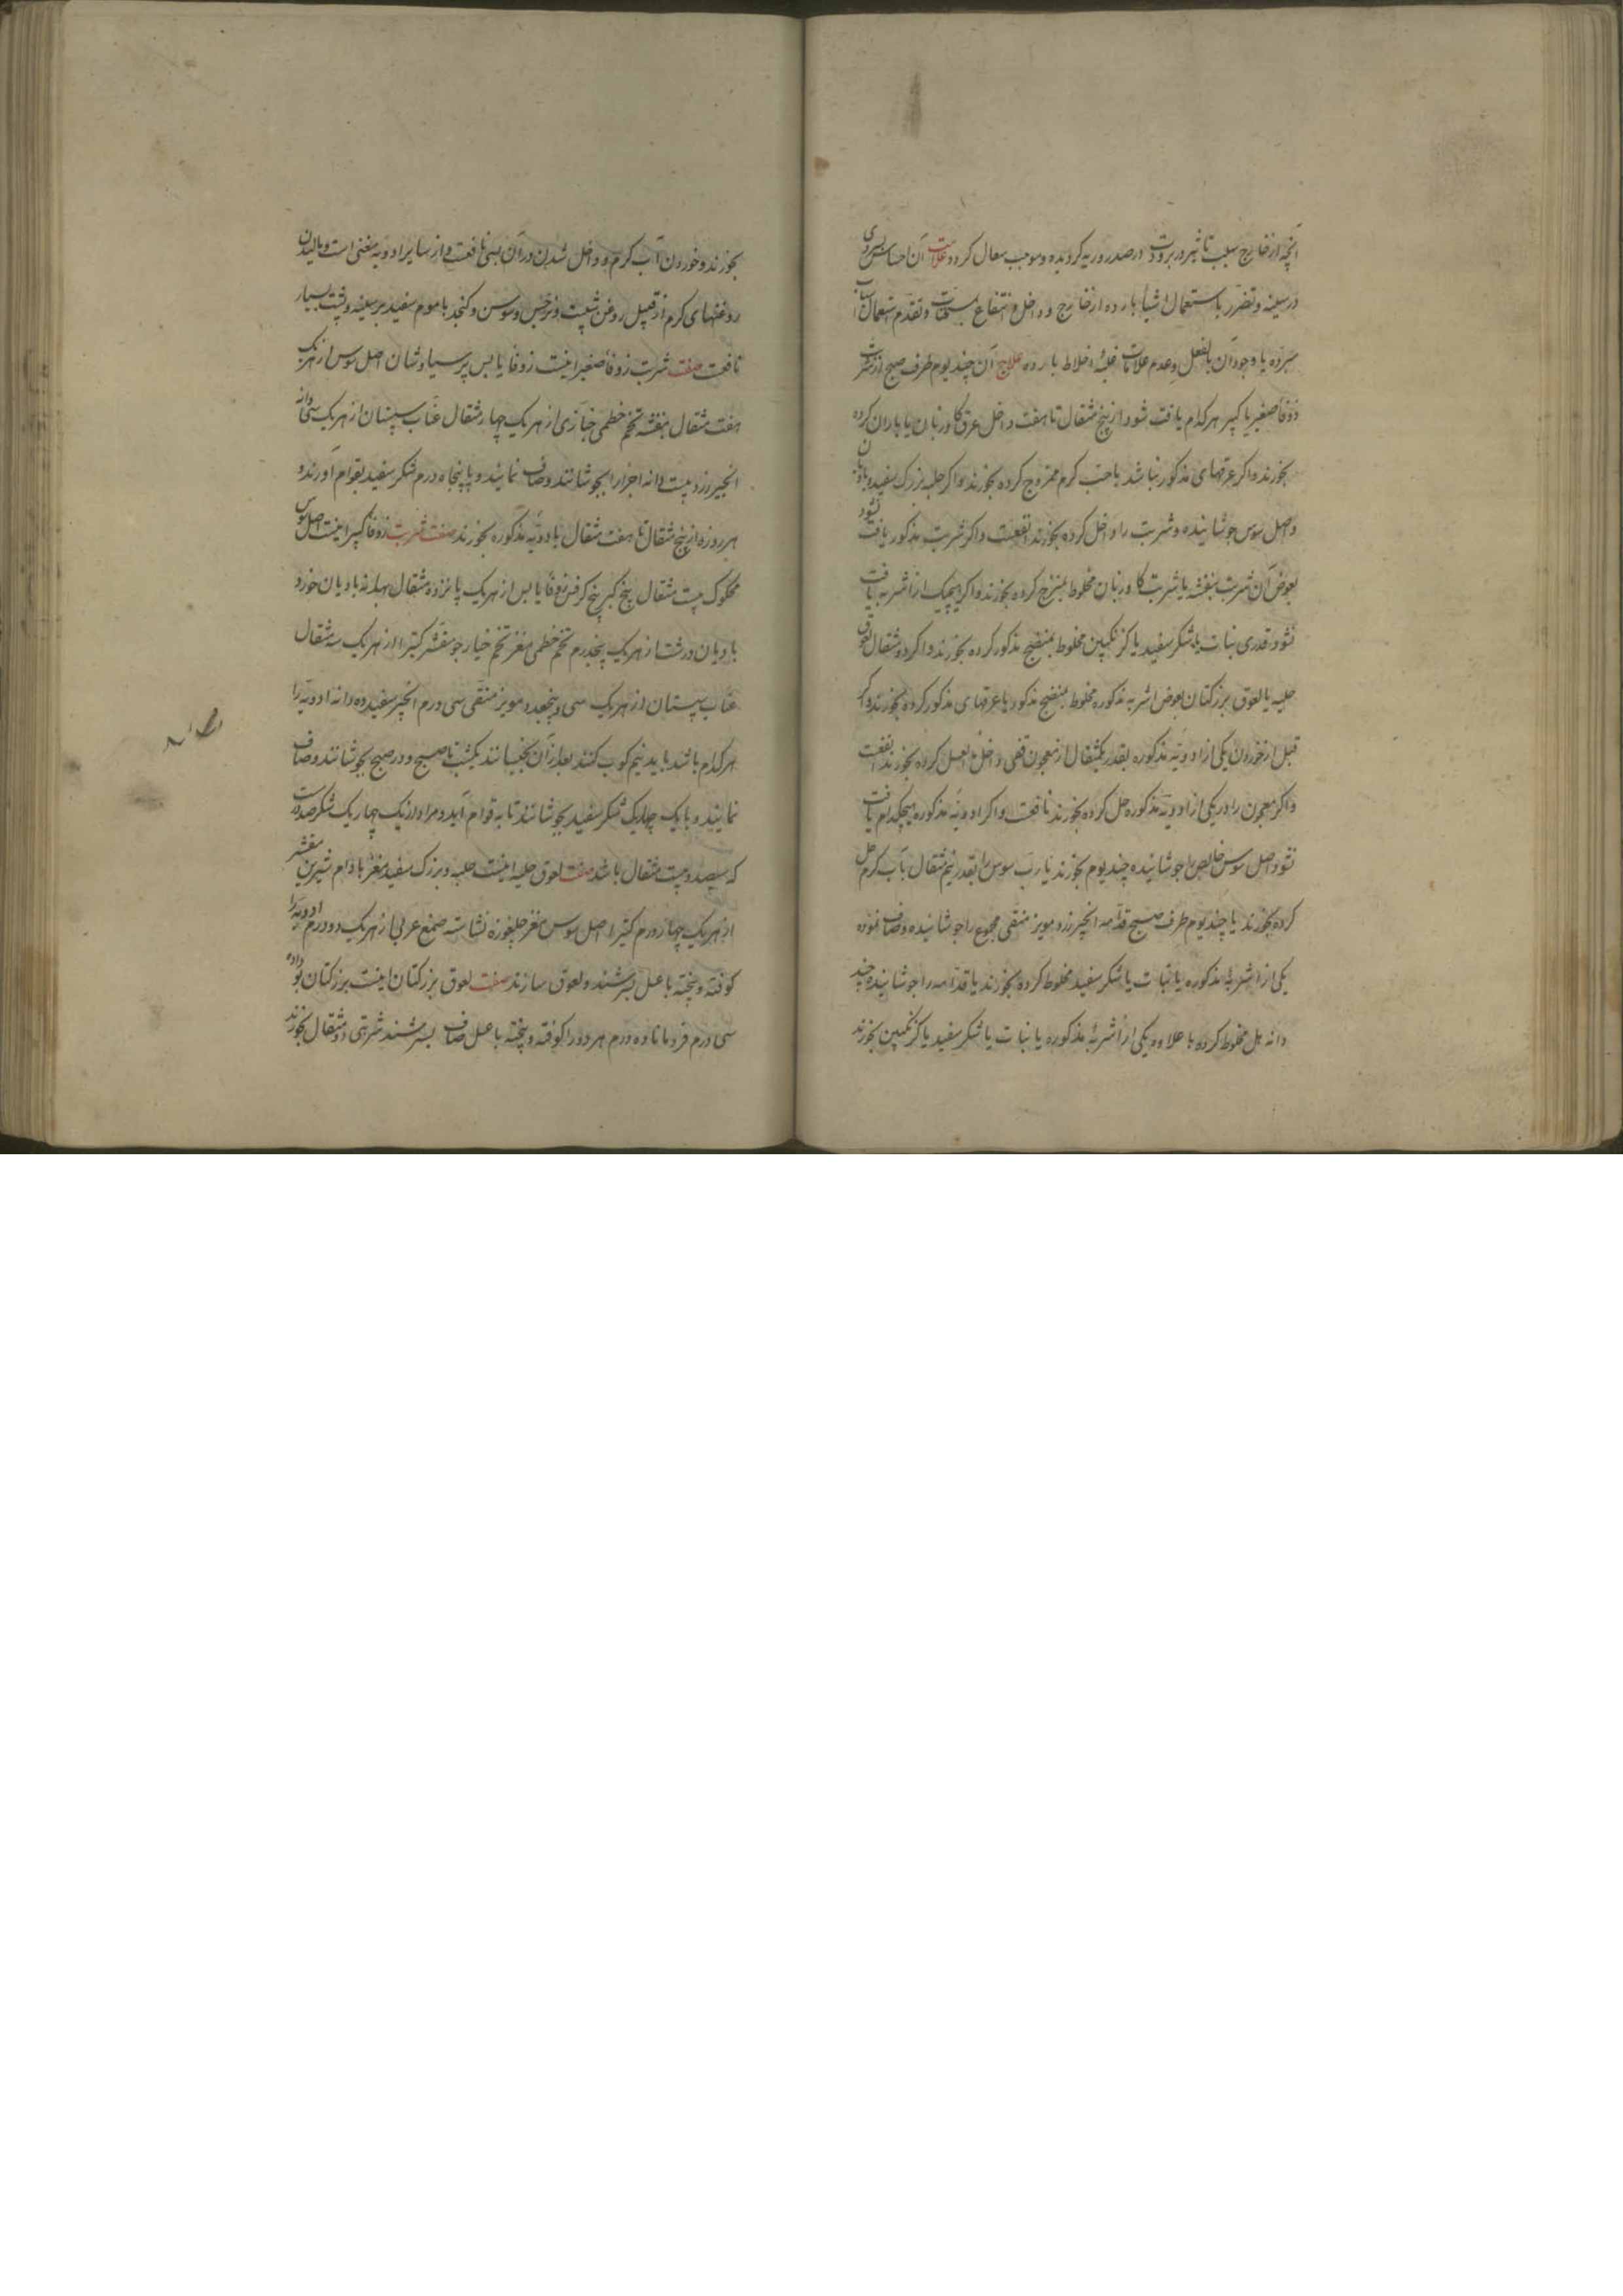 آنچه از خارج بسبب تاثیر در برودت در صدر و ریه کردیده و موجب سعال کردد علامت آن احساس سردی
در سینه و تضرر باستعمال اشیأ بارده از خارج و داخل و انتفاع بمسخنات و تقدم استعمال اسباب
مبرده یا وجود آن بالفعل و عدم علامات غلبهٔ اخلاط بارده علاج آن چند یوم طرف صبح از شربت
زوفأ صغیر یا کبیر هر کدام یافت شود از پنج مثقال تا هفت داخل عرق کاوزبان یا باران کرده
بخورند و اکر عرقهای مذکور نباشد با آب کرم ممزوج کرده بخورند و اکر حلبه بزرک سفید و بادیان
و اصل سوس جوشانیده و شربت را داخل کرده بخورند انفعست و اکر شربت مذکور یافت نشود
بعوض آن شربت بنفشه یا شربت کاوزبان مخلوط بمنضج کرده بخورند و اکر هیچیک از اشربه یافت
نشود قدری نبات یا شکر سفید یا کزنکبین مخلوط بمنضج مذکور کرده بخورند و اکر دو مثقال لعوق
حلبه یا لعوق بزر کتان بعوض اشربه مذکوره مخلوط بمنضج مذکور یا عرقهای مذکور کرده بخورند و اکر
قبل از خوردن یکی از ادویه مذکوره بقدر یکمثقال از معجون قفی داخل العسل کرده بخورند انفعست
و اکر معجون را در یکی از ادویه مذکوره حل کرده بخورند نافعست و اکر ادویه مذکوره هیچکدام یافت
نشود اصل سوس خالص را جوشانیده چند یوم بخورند یا رب سوس را بقدر نیم مثقال بآب کرم حل
کرده بخورند یا چند یوم طرف صبح قدامه انجیر زرد مویز منقی مجموع را جوشانیده و صاف نموده
یکی از اشربهٔ مذکوره یا نبات یا شکر سفید مخلوط کرده بخورند یا قدامه را جوشانیده چند
دانه هل مخلوط کرده با علاوه یکی از اشربهٔ مذکوره یا نبات یا شکر سفید یا کزنکبین بخورند
بخورند و خوردن آب کرم و داخل شدن در آن بسی نافعست و از سایر ادویه مغنی است و مالیدن
روغنهای کرم از قبیل روغن شبت و نرجس و سوسن و کنجد با موم سفید بر سینه و پشت بسیار
نافعست صفت شربت زوفأ صغیر اینست زوفأ یابس پرسیاوشان اصل سوس از هر یک
هفت مثقال بنفشه تخم خطمی خبازی از هر یک چهار مثقال عناب سپستان از هر یک سی دانه
انجیر زرد بیست دانه اجزا را بجوشانند و صاف نمایند و با پنجاه درم شکر سفید بقوام آورند و
هر روزه از پنج مثقال تا هفت مثقال بادویه مذکوره بخورند صفت شربت زوفا کبیر اینست اصل سوس
محکوک بیست مثقال بیخ کبر بیخ کرفس زوفأ یابس از هر یک پانزده مثقال بهدانه بادیان خورد
بادیان درشت از هر یک پنجدرم تخم خطمی مغز تخم خیار جو مقشر کتیرا از هر یک سه مثقال
عناب سپستان از هر یک سی و پنجعدد مویز منقی سی درم انجیر سفید ده دانه ادویه را
هر کدام باشد باید نیم کوب کنند بعد از آن بخیسانند یکشب تا صبح و در صبح بجوشانند و صاف
نمایند و با یک چهاریک شکر سفید بجوشانند تا به قوام آید و مراد از یک چهاریک شکر صد درمست
که سیصد و بیست مثقال باشد صفت لعوق حلبه اینست حلبه و بزرک سفید مغز بادام شیرین مقشر
از هر یک چهار درم کتیرا اصل سوس مغز چلغوزه نشاسته صمغ عربی از هر یک دو درم ادویه را
کوفته و بیخته با عسل بسرشند و لعوق سازند صفت لعوق بزر کتان اینست بزر کتان بو داده
سی درم قردمانا ده درم هر دو را کوفته و بیخته با عسل صاف بسرشند شربتی دو مثقال بخورند